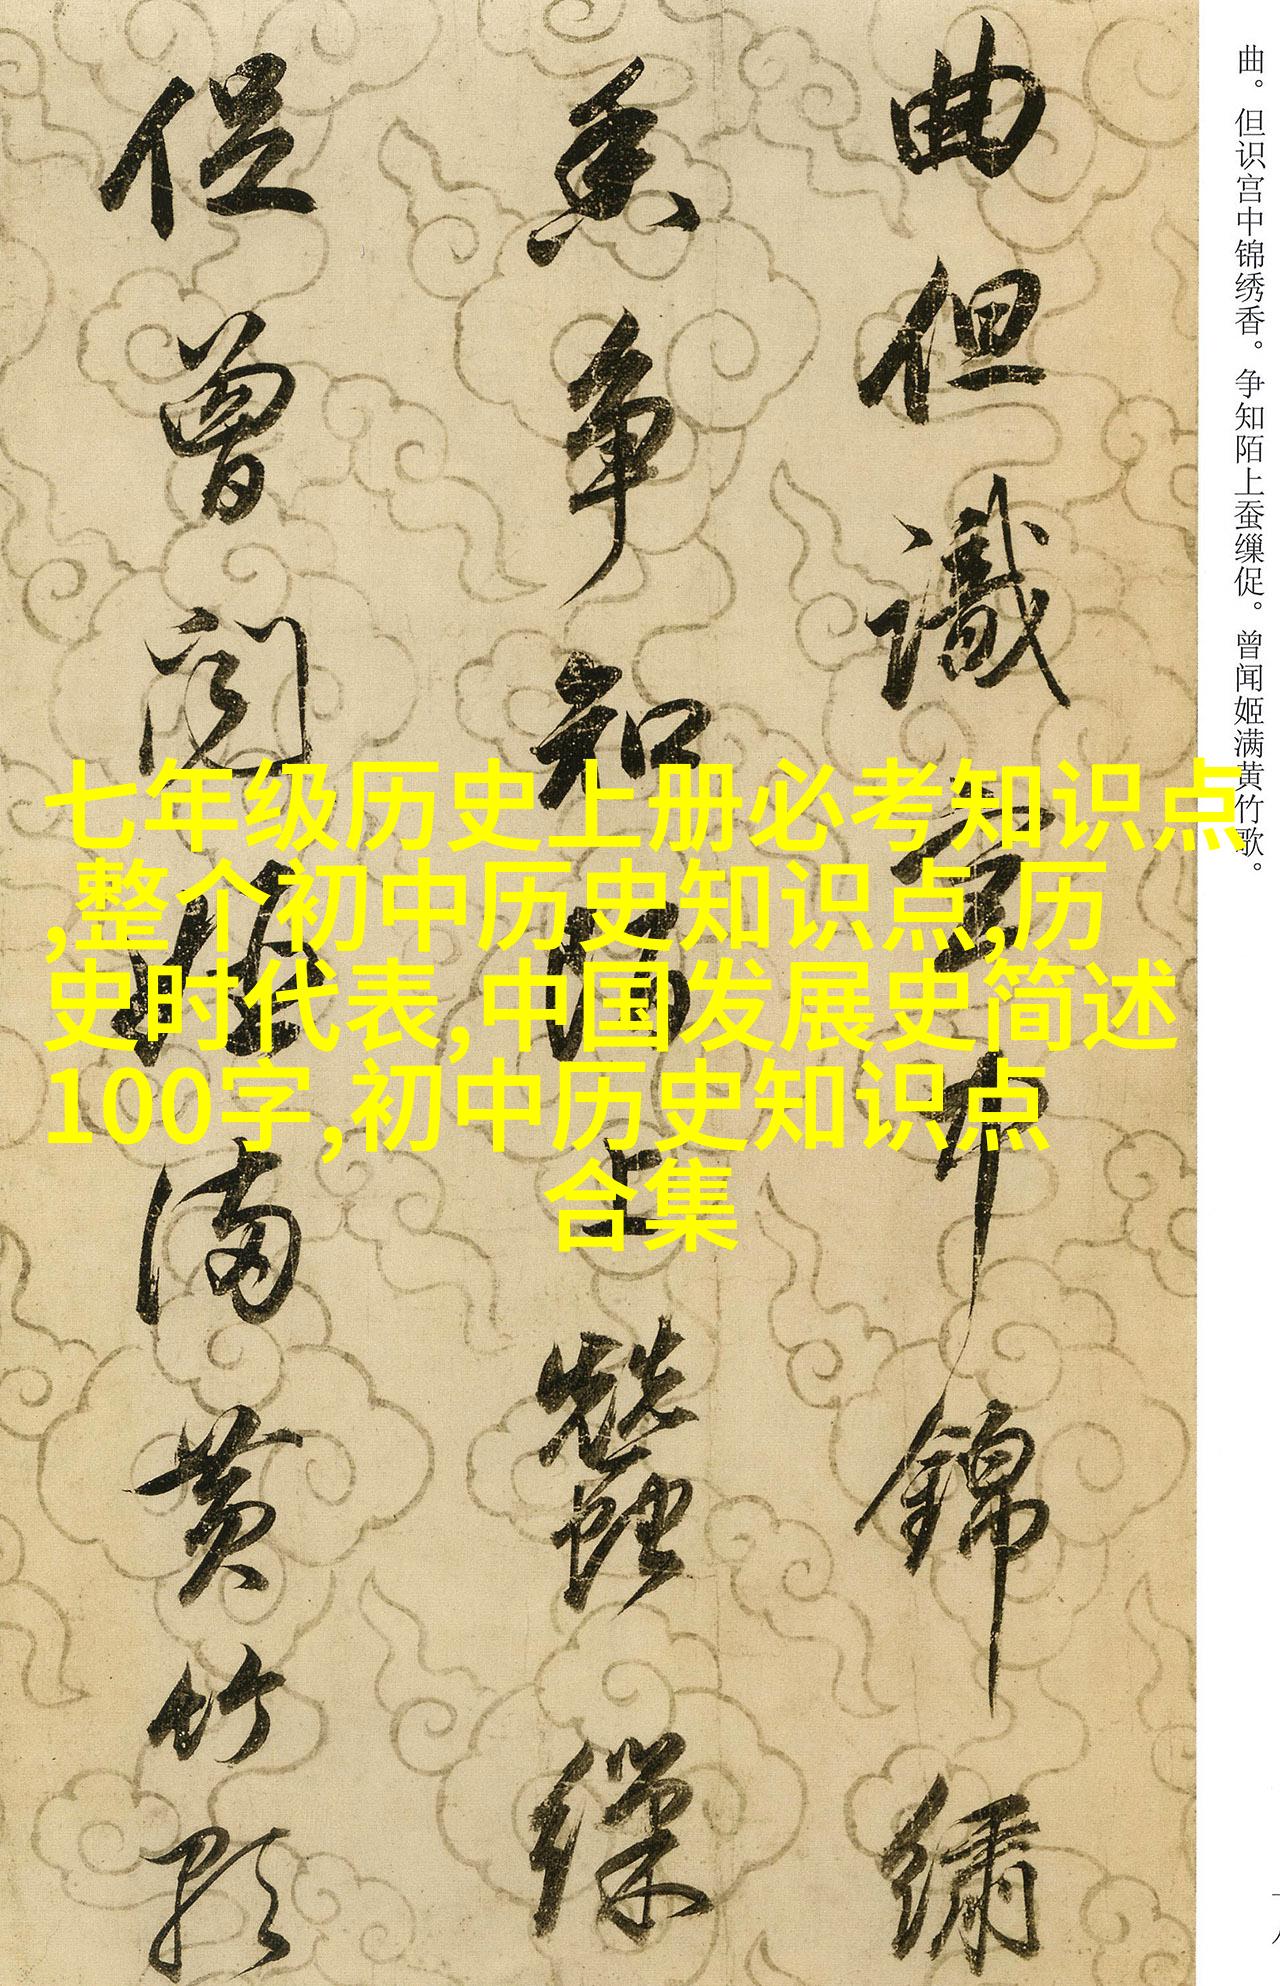 曲但識宮中錦繡
香争知陌上蠶繅
促曾闻姬满黄竹歌
曲。但识宫中锦绣香。争知陌上蚕缫促。曾闻姬满黄竹歌。
七年级历史上册必考知识点
,整个初中历史知识点,历
史时代表,中国发展史简述
100字,初中历史知识点
合集